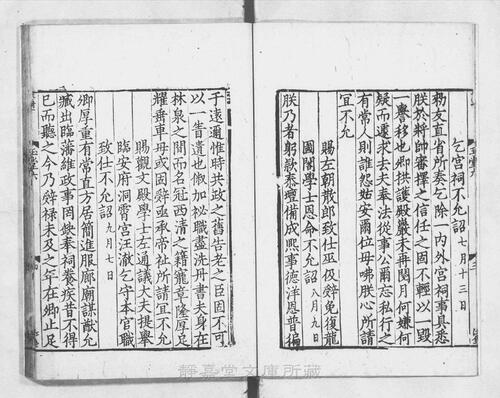 乞宫祠不允詔七月十三日
勑友直省所奏乞除一内外宫祠事具悉
朕於將帥審擇之信任之固不輕以毁
一譽移也卿拱護殿巖未再閲月何嫌何
疑而遽求去夫奉法從事公爾忘私行之
有常人則誰怨姑安爾位毋咈朕心所請
宜不允
賜左朝散郎致仕巫伋辭免復龍
圖閣學士恩命不允詔八月九日
朕乃者躬獻泰壇備成熙事德洋恩普徧
于遠邇惟時共政之舊告老之臣固不可
以一眚遺也俶加祕職盡洗丹書夫身在
林泉之間而名冠西清之籍寵章隆厚足
耀垂車毋或固辭亟承帝祉所請宜不允
賜觀文殿學士左通議大夫提舉
臨安府洞霄宫汪澈乞守本官職
致仕不允詔九月七日
卿厚重有常直方居簡進服廊廟謀猷允
臧出臨藩維政事罔缺奉祠養疾昔不得
已而聽之今乃辭祿未及之年在卿止足
玉堂六
靜嘉堂文庫所藏